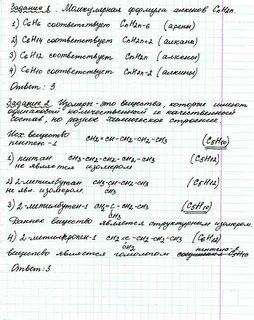 Задание 1. Молекулярная формула алкенов CnH2n.
1) C6H6 соответствует CnH2n-6 (арены)
2) C6H14 соответствует CnH2n+2 (алканы)
3) C6H12 соответствует CnH2n (алкены)
4) C6H10 соответствует CnH2n-2 (алкины)
Ответ: 3
Задание 2. Изомеры - это вещества, которые имеют
одинаковый количественный и качественный
состав, но разное химическое строение.
Исх. вещество
пентен-1 CH2=CH-CH2-CH2-CH3 (C5H10)
1) пентан CH3-CH2-CH2-CH2-CH3 (C5H12)
не является изомером
2) 2-метилбутан CH3-CH-CH2-CH3 (C5H12)
не явл. изомером CH3
3) 2-метилбутен-1 CH2=C-CH2-CH3 (C5H10)
CH3
Данное вещество является структурным изомером.
4) CH2=C-CH2-CH2-CH3 (C6H12)
CH3
вещество является гомологом
Ответ: 3